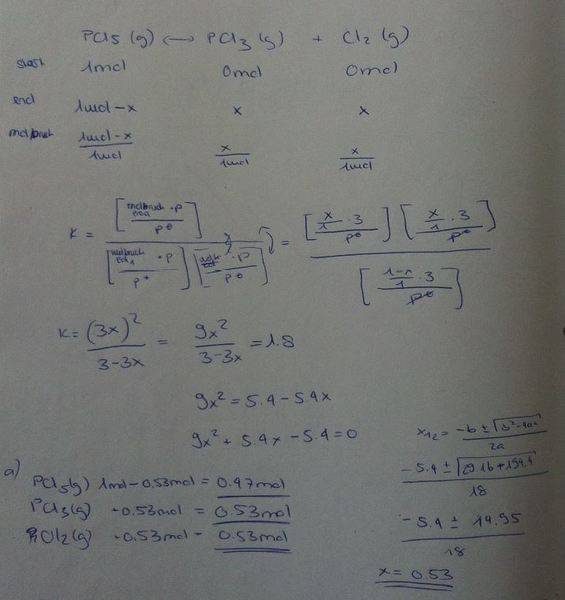 PCl5 (g) ⟷ PCl3 (g) + Cl2 (g)
start 1mol 0mol 0mol
end 1mol-x x x
molbruch (1mol-x)/1mol x/1mol x/1mol
K = [molbruch · p / p⊖] / [molbruch · p / p⊖] [ · p / p⊖] = [x/1 · 3 / p⊖] [x/1 · 3 / p⊖] / [(1-x)/1 · 3 / p⊖]
K = (3x)² / (3-3x) = 9x² / (3-3x) = 1.8
9x² = 5.4 - 5.4x
9x² + 5.4x - 5.4 = 0
x12 = (-b ± √(b²-4ac)) / 2a
(-5.4 ± √(29.16+194.4)) / 18
(-5.4 ± 14.95) / 18
x = 0.53
a) PCl5(g) 1mol - 0.53mol = 0.47mol
PCl3(g) -0.53mol = 0.53mol
Cl2(g) -0.53mol = 0.53mol